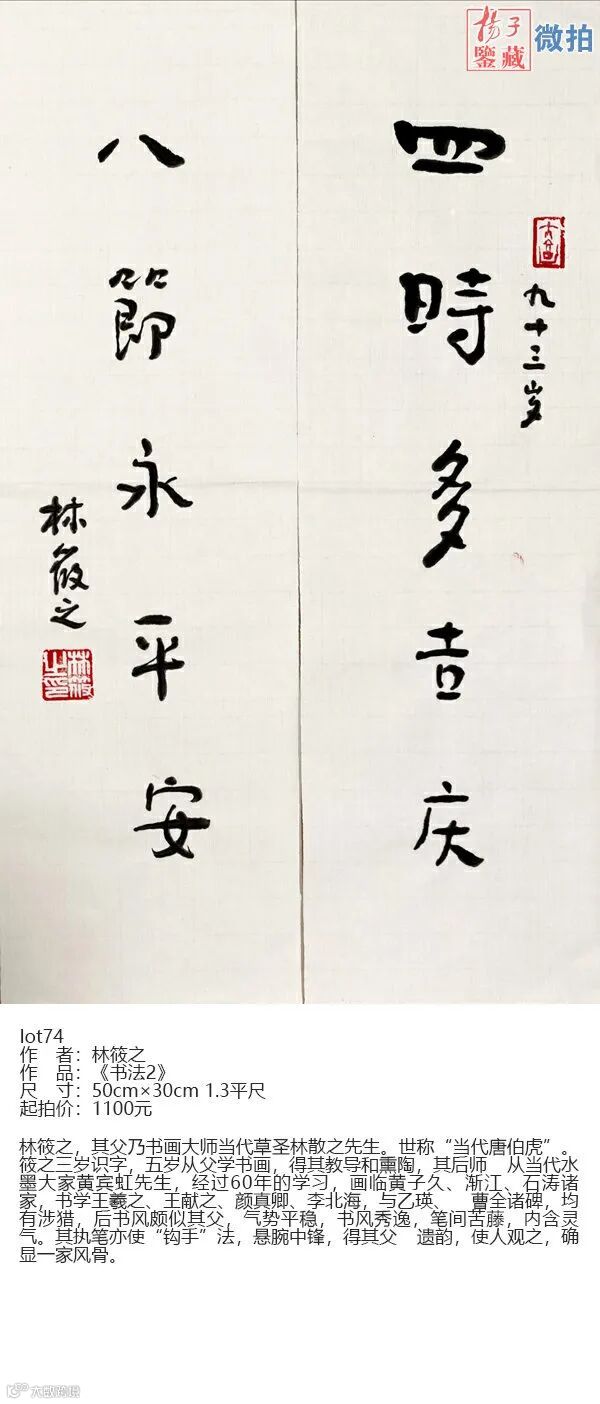 揚子
鑒藏
微拍
四時多吉庆
九十三岁
八節永平安
林筱之
林筱
之印
lot74
作 者：林筱之
作 品：《书法2》
尺 寸：50cm×30cm 1.3平尺
起拍价：1100元
林筱之，其父乃书画大师当代草圣林散之先生。世称“当代唐伯虎”。
筱之三岁识字，五岁从父学书画，得其教导和熏陶，其后师 从当代水
墨大家黄宾虹先生，经过60年的学习，画临黄子久、渐江、石涛诸
家，书学王羲之、王献之、颜真卿、李北海，与乙瑛、 曹全诸碑，均
有涉猎，后书风颇似其父，气势平稳，书风秀逸，笔间苦藤，内含灵
气。其执笔亦使“钩手”法，悬腕中锋，得其父 遗韵，使人观之，确
显一家风骨。